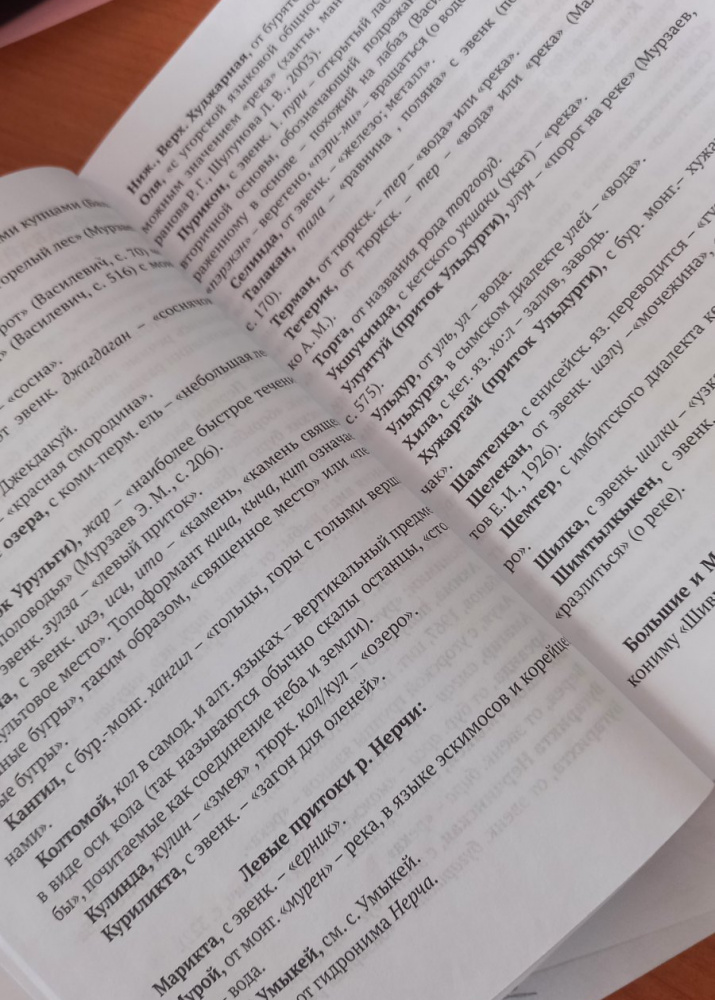 ми купцами
горелый лес»
рот» (Василевич, с. 70)
» (Василевич, с. 516) с
– «сосна».
от эвенк. джагдаган – «сосняко
Джекдакуй.
– «красная смородина».
озера, с коми-перм. ель – «небольшая ле
ок Урульги), жар – «наиболее быстрое течени
половодья» (Мурзаев Э. М., с. 206).
эвенк. зулза – «левый приток».
на, с эвенк. ихэ, иси, ито – «камень, «камень свяще
культовое место». Топоформант кича, кыча, кит означа
ные бугры», таким образом, «священное место» или «пе
ые бугры».
Кангил, с бур.-монг. хангил – «гольцы, горы с голыми верш
нами».
Колтомой, кол в самод. и алт. языках – вертикальный предме
в виде оси кола (так называются обычно скалы останцы, «сто
бы», почитаемые как соединение неба и земли).
Кулинда, кулин – «змея» , тюрк. кол/кул – «озеро».
Куриликта, с эвенк. – «загон для оленей».
Левые притоки р. Нерчи:
Марикта, с эвенк. – «ерник».
Мурой, от монг. «мурен» – река, в языке эскимосов и корейце
– вода.
Умыкей, см. с. Умыкей.
от гидронима Нерча.
Ниж., Верх. Худжарная, от бурят
Оля, «с угорской языковой общнос
можным значением «река» (ханты, ман
рахова Р. Г., Шулунова Л. В., 2003).
Пурикан, с эвенк. 1. пури – открытый лаб
вторичной основы, обозначающий подража
раженному в основе – похожий на лабаз (Васи
пэрэкэн» – веретено, «пэри-ми» – вращаться (о вод
Селинда, от эвенк. – «железо; металл».
Талакан, тала – «равнина , поляна» с эвенк
с. 170).
Терман, от тюркск. – тер – «вода» или «река».
Тетерик, от тюркск. – тер – «вода» или «река» (Ма
ко А. М.).
Торга, от названия рода торгооуд.
Укшукинда, с кетского укшаки (укат) – «река».
Улунтуй (приток Ульдурги), улун – «порог на реке» (Мурзаев,
с. 575).
Ульдур, от уль, ул – вода.
Ульдурга, в сымском диалекте улей – «вода».
Хила, с кет. яз. хо:л – залив, заводь.
Хужартай (приток Ульдурги), с бур. монг.– хужа
чак».
Шамтелка, с енисейск. яз. переводится –
Шелекан, от эвенк. шэлу –«мочежина»,
тов Е. И., 1926).
Шемтер, с имбитского диалекта
ро».
Шилка, с эвенк. шилки – «узк
Шимтылкыкен, с эвенк.
«разлиться» (о реке).
Большие и М
кониму «Шив